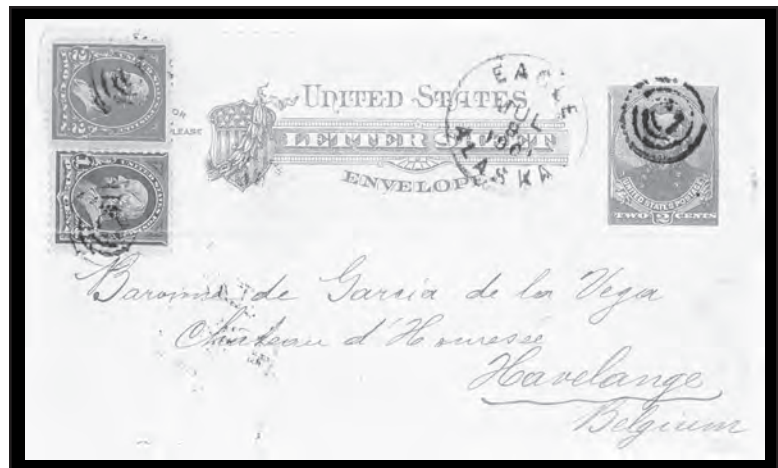 UNITED STATES
LETTER SHEET
ENVELOPE
OR
LEASE
EAGLE
JUL
8
ALASKA
UNITED STATES POSTAGE
TWO 2 CENTS
de Garcia de la Vega
Château d'
Havelange
Belgium